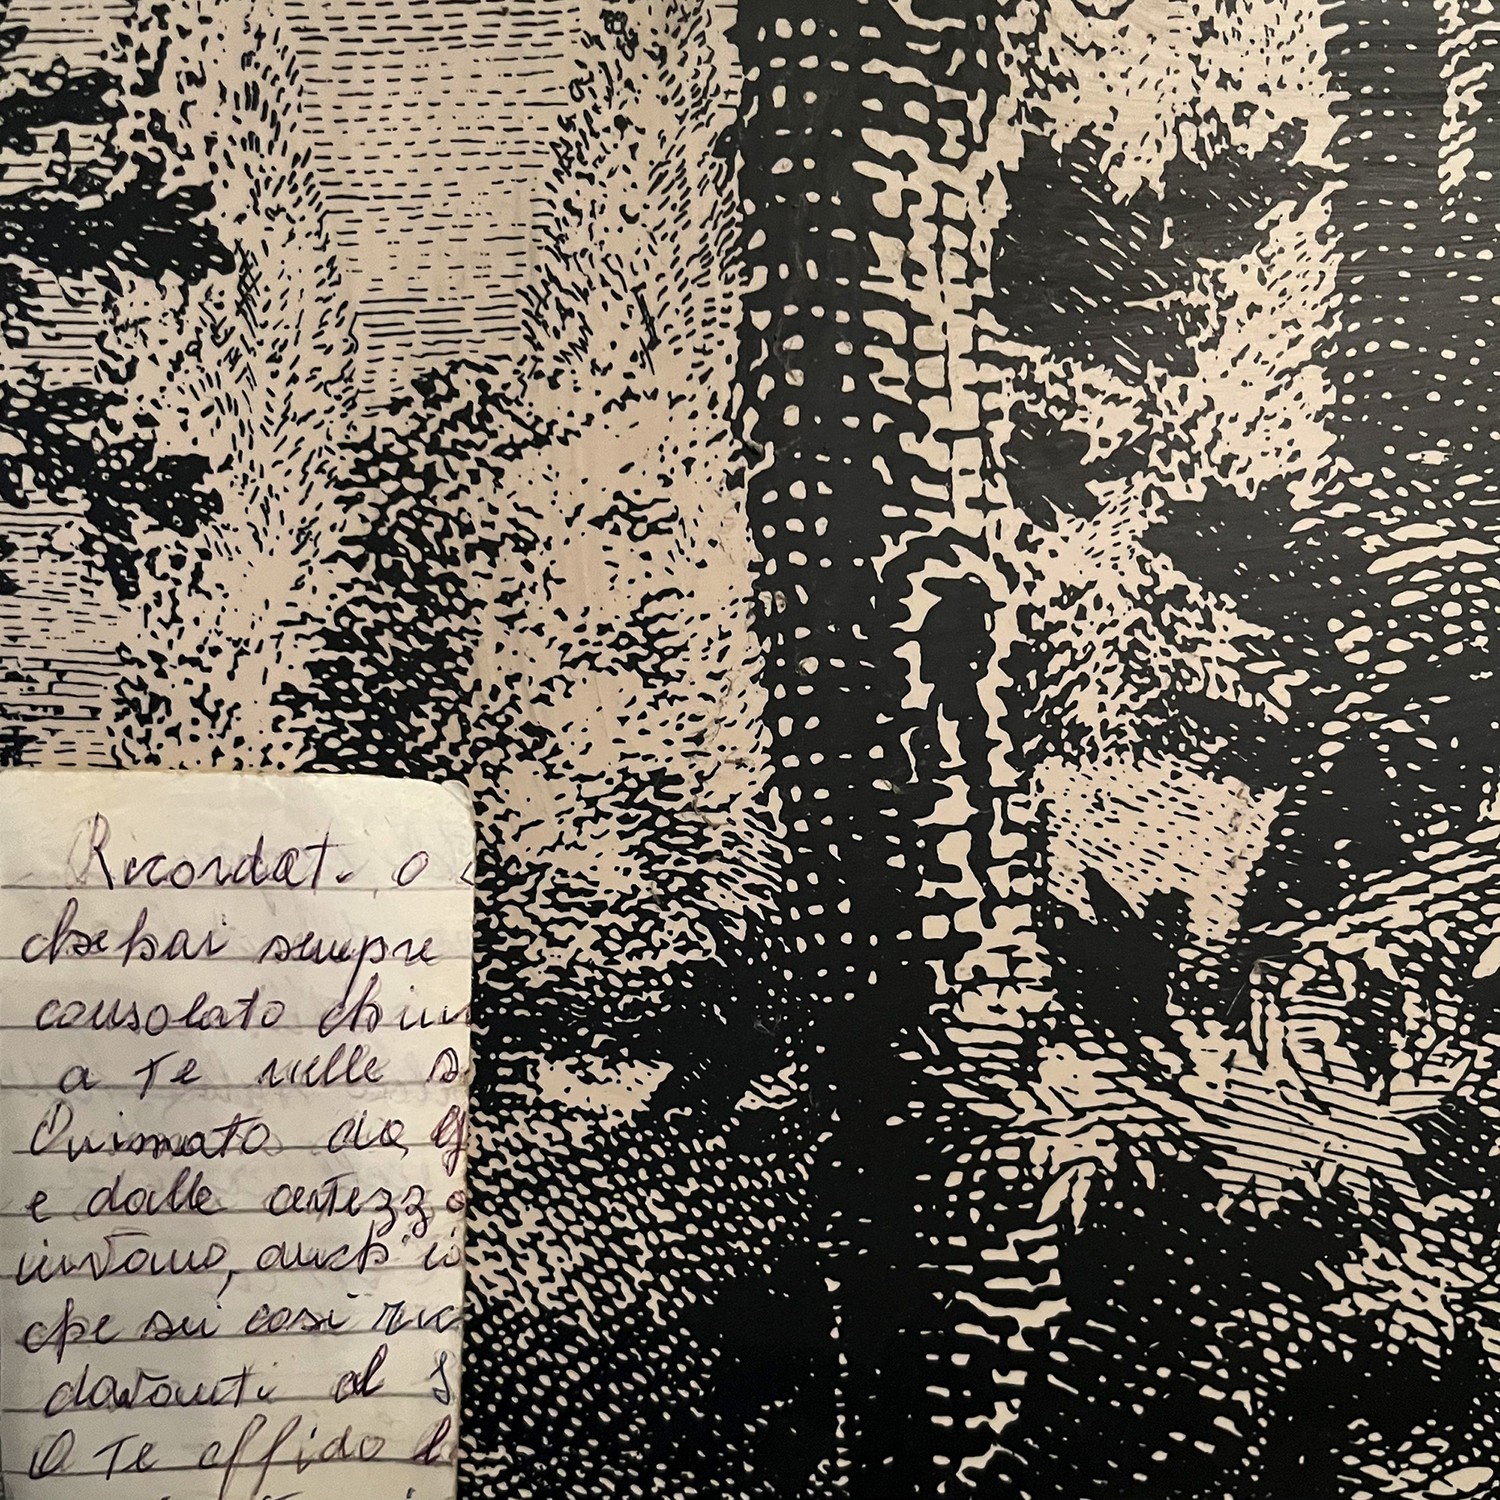 Ricordati o
che hai sempre
consolato chi
a Te nelle
Animato da
e dalle certezza
invano, anch' io
che sei così
davanti al
A Te affido